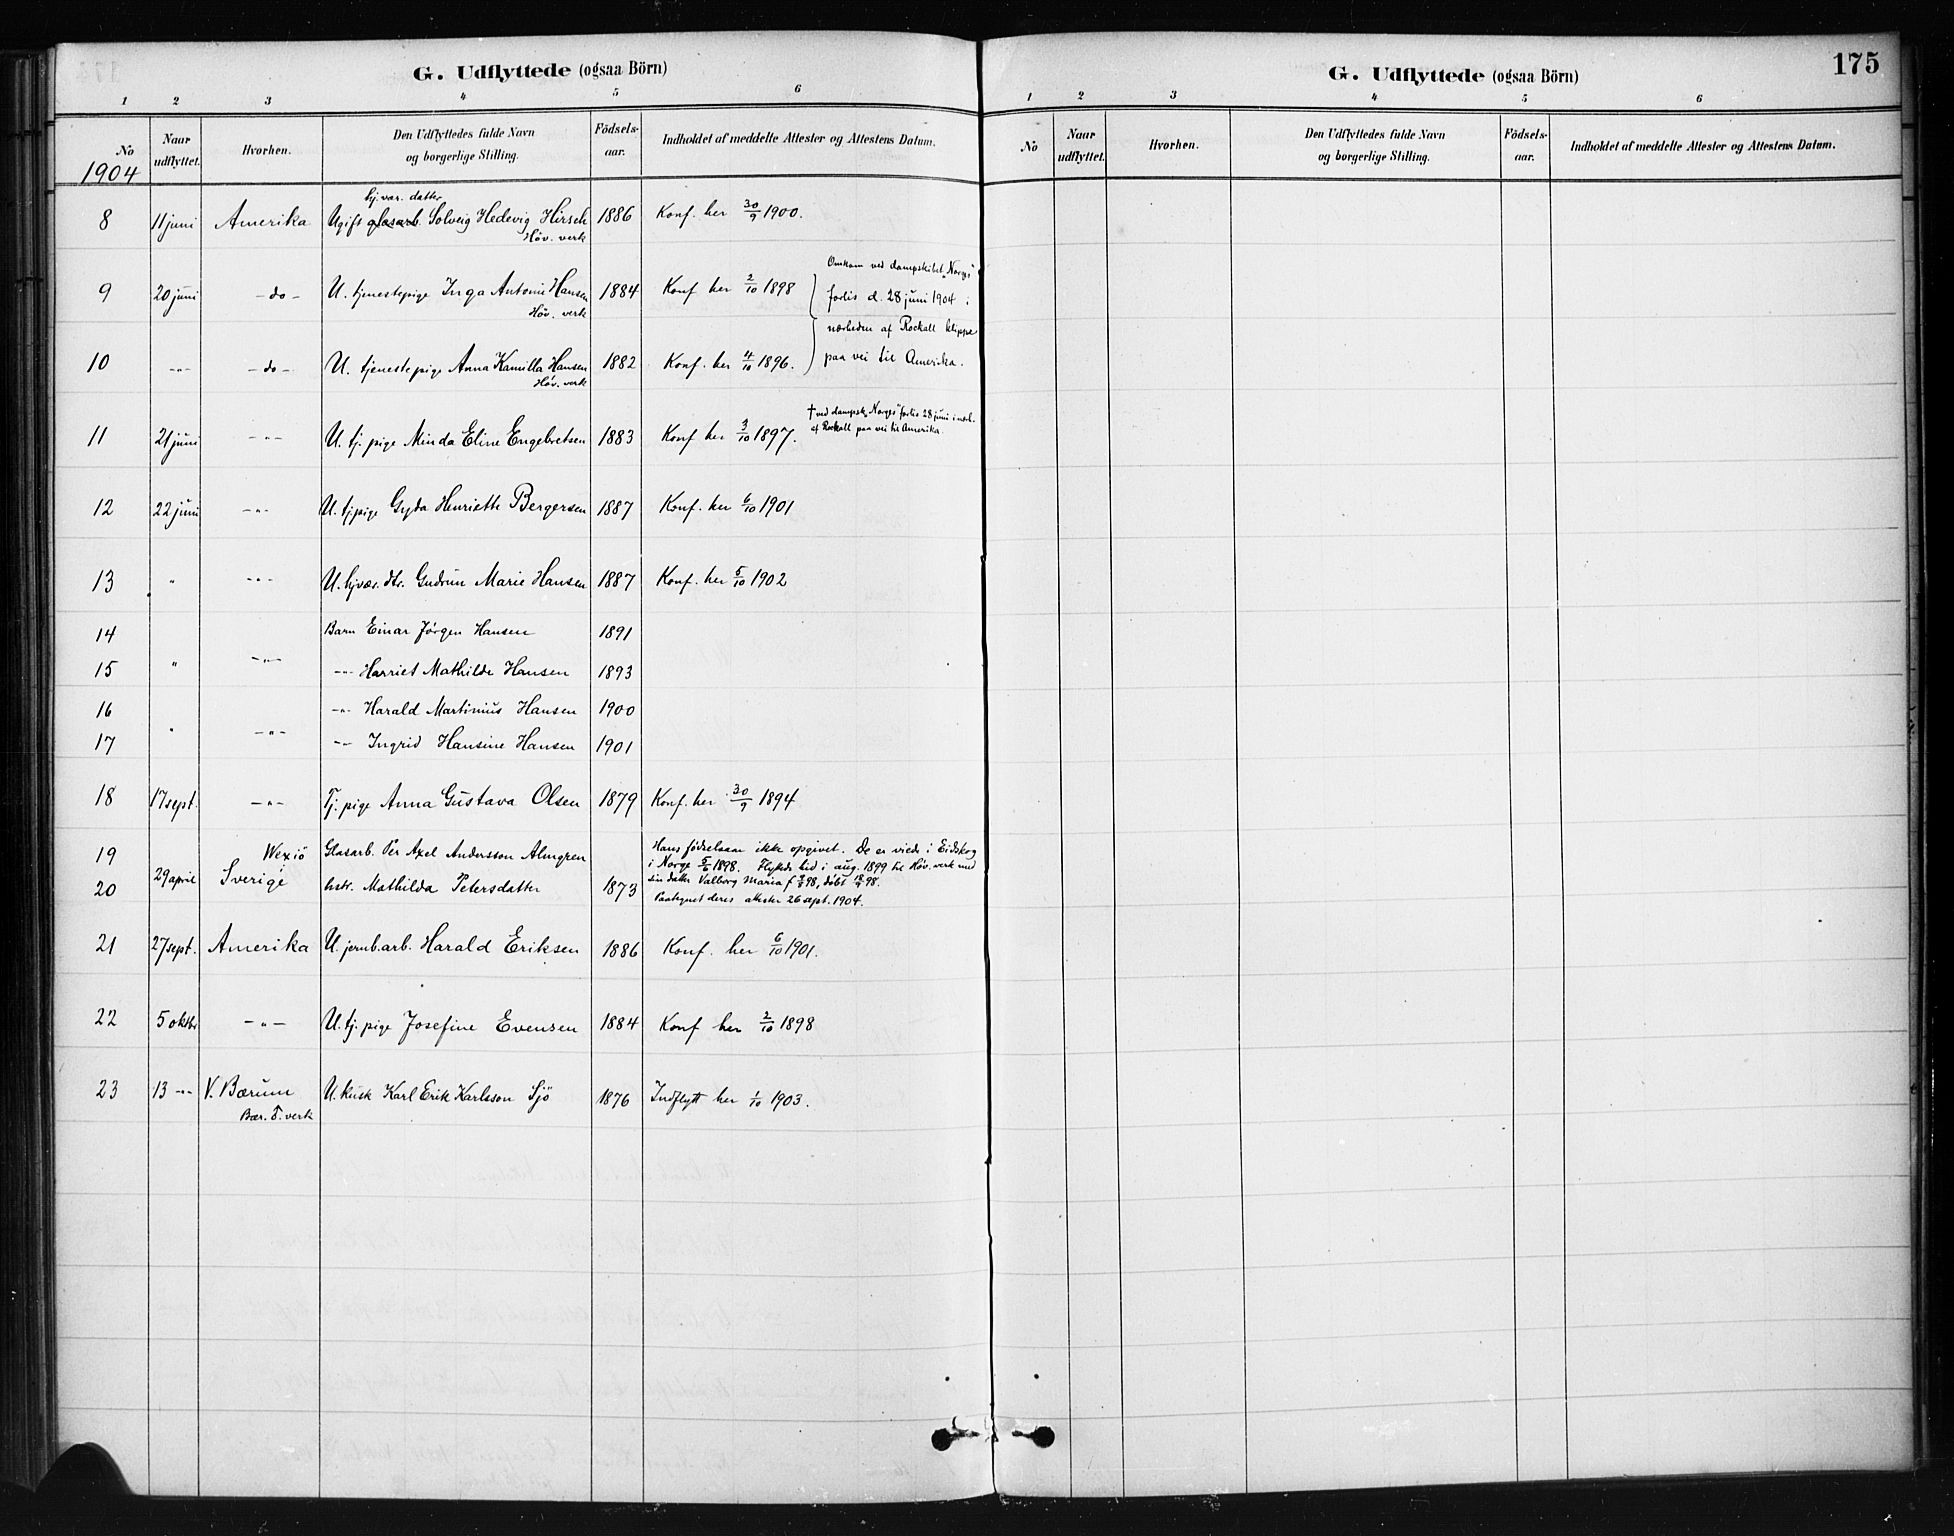 G. Udflyttede (ogsaa Börn)
1 2 3 4 5 6
No Naar udflyttet. Hvorhen. Den Udflyttedes fulde Navn og borgerlige Stilling. Födsels-aar. Indholdet af meddelte Attester og Attestens Datum.
1904
hj. vær. datter
8 11 juni Amerika Ugift glasarb. Solveig Hedevig Hirsch 1886 Konf. her 30/9 1900.
Höv. verk
9 20 juni -do- U. tjenestepige Inga Antonie Hansen 1884 Konf her 2/10 1898
Höv. verk
Omkom ved dampskibet "Norges"
forlis d. 28 juni 1904 i
nærheden af Rockall klippe
paa vei til Amerika.
10 -"- -do- U. tjenestepige Anna Kamilla Hansen 1882 Konf. her 4/10 1896.
Höv. verk
11 21 juni -"- U. tj. pige Minda Eline Engebretsen 1883 Konf her 3/10 1897.
† ved dampsk. "Norges" forlis 28 juni i nærh.
af Rockall paa vei til Amerika.
12 22 juni -"- U. tj. pige Gyda Henriette Bergersen 1887 Konf. her 6/10 1901
13 " -"- U. hjvær. dtr. Gudrun Marie Hansen 1887 Konf. her 5/10 1902
14 Barn Einar Jörgen Hansen 1891
15 " -"- -"- Harriet Mathilde Hansen 1893
16 -"- Harald Martinius Hansen 1900
17 " -"- -"- Ingrid Hansine Hansen 1901
18 17 sept. -"- Tj. pige Anna Gustava Olsen 1879 Konf. her 30/9 1894
19 Wexiö Glasarb. Per Axel Andersson Almgren
20 29 april Sverige hstr. Mathilda Petersdatter 1873
Hans födselsaar ikke opgivet. De er viede i Eidskog
i Norge 5/6 1898. Flyttede hid i aug. 1899 til Höv. verk med
sin datter Valborg Maria f 98, döbt 98.
Paategnet deres attester 26 sept. 1904.
21 27 sept. Amerika U. jernb. arb. Harald Eriksen 1886 Konf. her 6/10 1901.
22 5 oktbr -"- U. tj. pige Josefine Evensen 1884 Konf her 2/10 1898
23 13 -"- V. Bærum U. kusk Karl Erik Karlsson Sjö 1876 Indflytt her 1/10 1903.
Bær. T. verk
G. Udflyttede (ogsaa Börn) 175
1 2 3 4 5 6
No Naar udflyttet. Hvorhen. Den Udflyttedes fulde Navn og borgerlige Stilling. Födsels-aar. Indholdet af meddelte Attester og Attestens Datum.